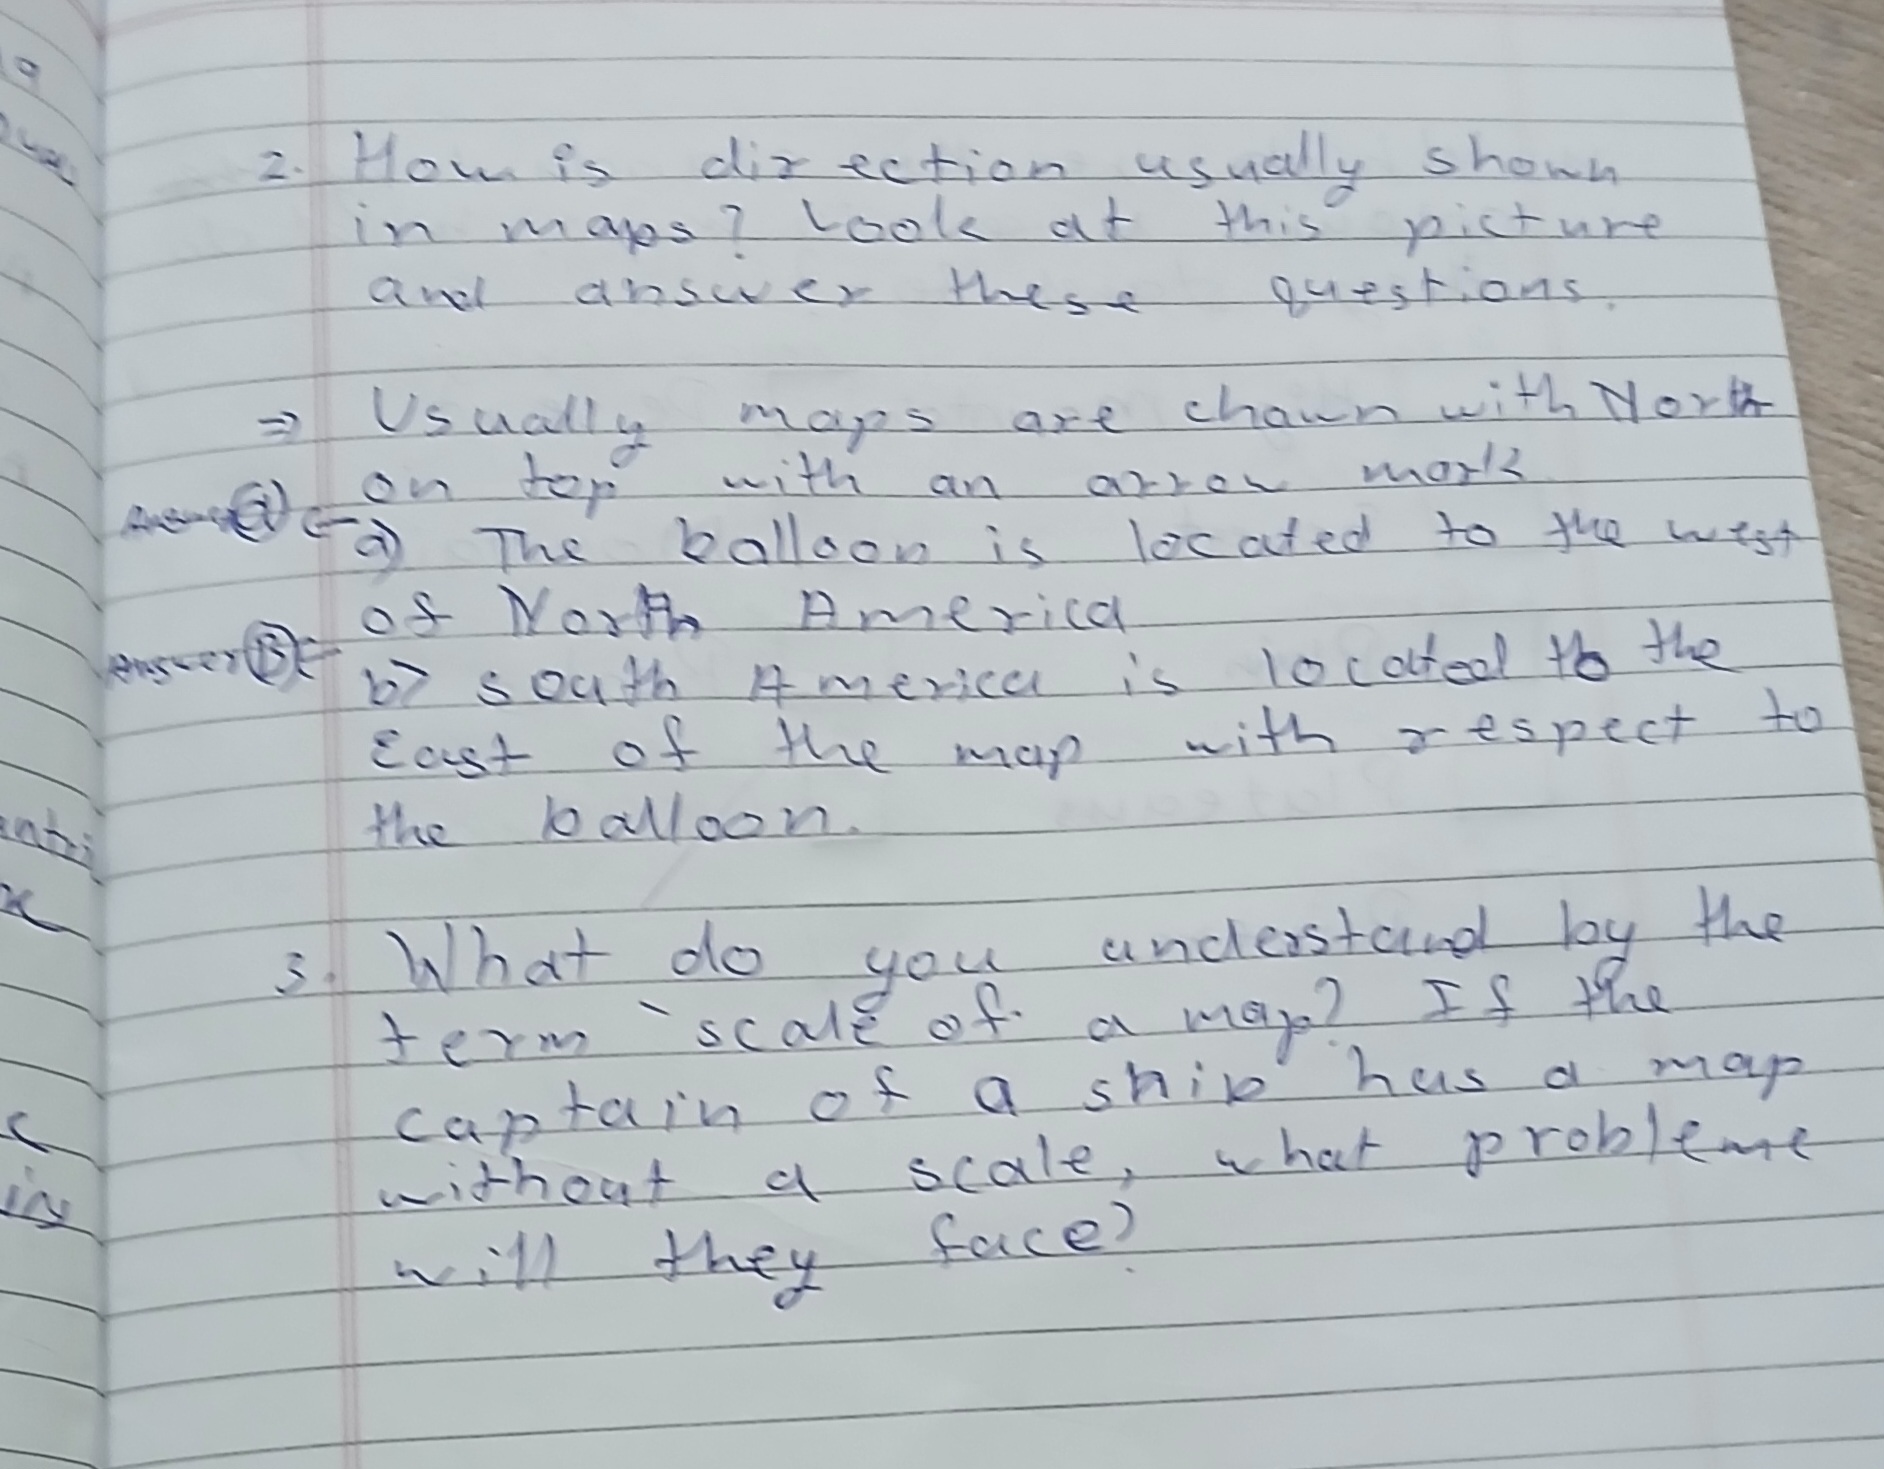 2. How is direction usually shown
in maps? Look at this picture
and answer these questions.
⇒ Usually maps are chawn with North
on top with an arrow mark
Answer (A) ⇐ a) The balloon is located to the west
of North America
Answer (B) ⇐ b) South America is located to the
East of the map with respect to
the balloon.
3. What do you understand by the
term `scale of a map? If the
captain of a ship has a map
without a scale, what probleme
will they face?